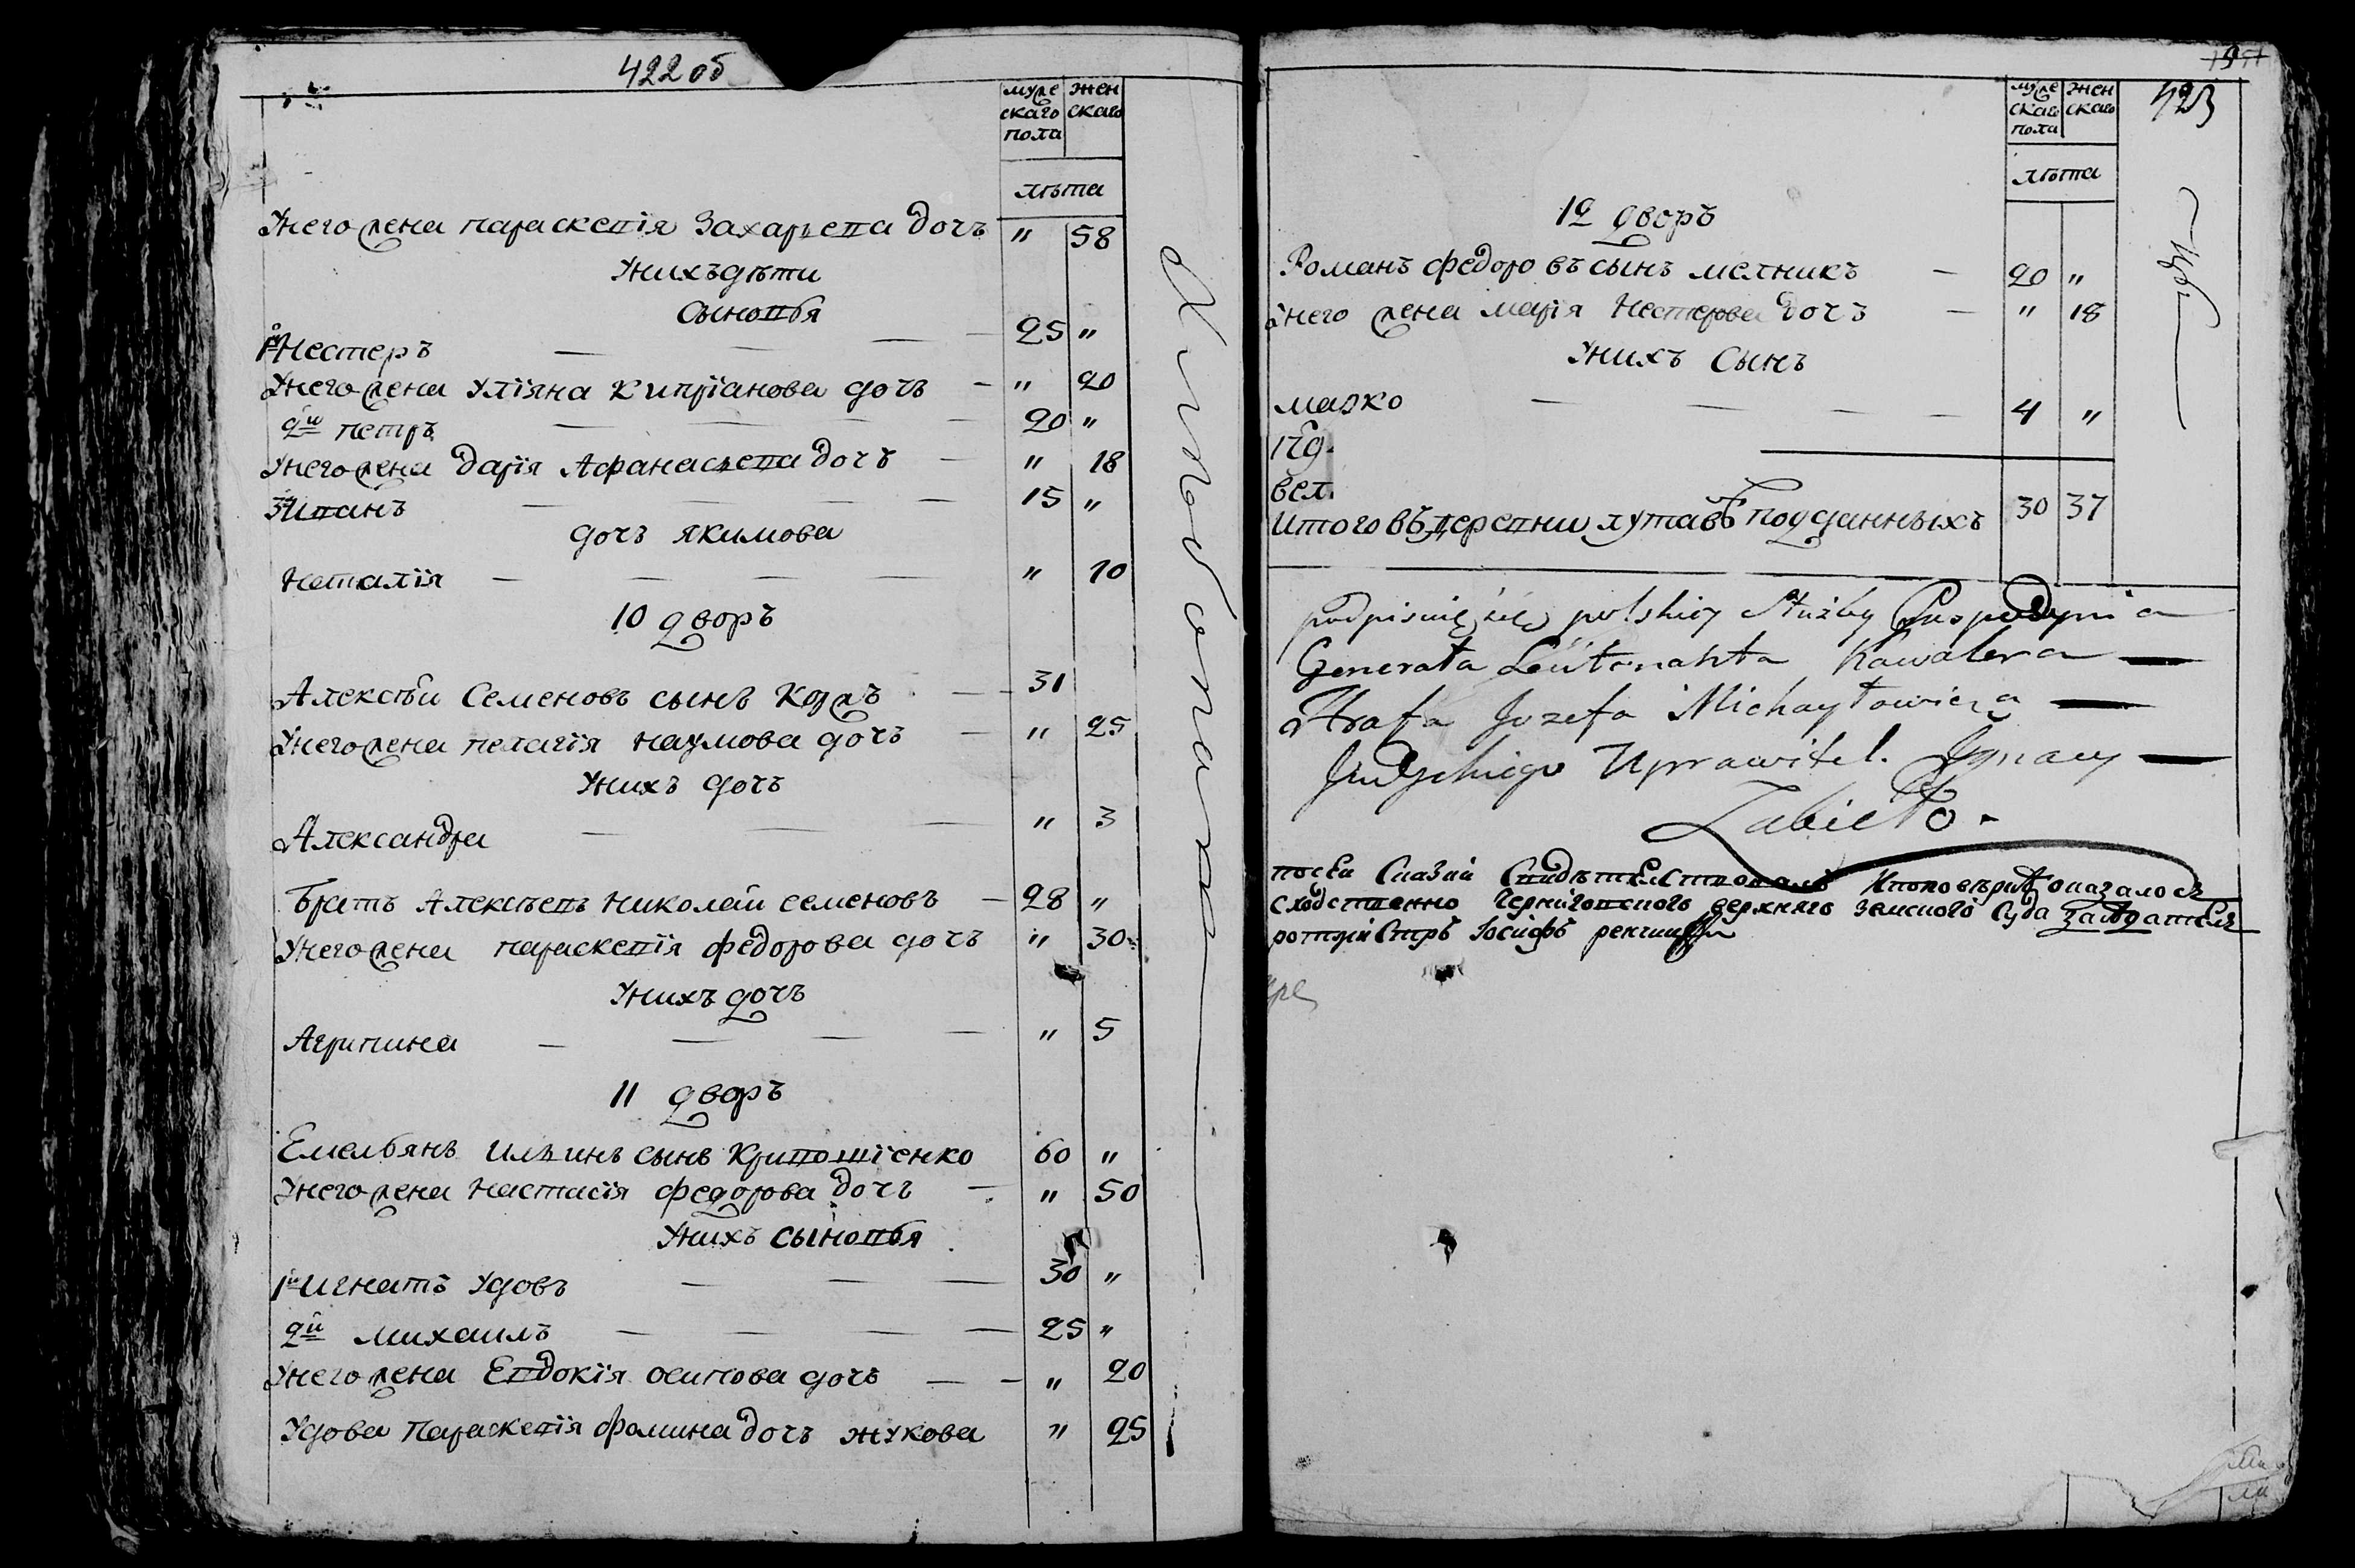 422 об
муже женскаго скаго пола
лѣта
У него жена параскевія Захарьева дочь " 58
У нихъ дѣти
Сыновья
1й Нестеръ 25 "
У него жена Уліяна Кипріанова дочь " 20
2й петръ 20 "
У него жена дарія Афанасьева дочь " 18
3й Иванъ 15 "
дочь якимова
Наталія " 10
10 дворъ
Алексѣй Семеновъ сынъ Козлъ 31
У него жена пелагія наумова дочь " 25
У нихъ дочь
Александра " 3
Братъ Алексѣевъ Николай семеновъ 28 "
У него жена параскевія федорова дочь " 30
У нихъ дочь
Агрипина " 5
11 дворъ
Емельянъ Ильинъ сынъ Кривошіенко 60 "
У него жена Настасія федорова дочь " 50
У нихъ сыновья
1й Игнатъ удовъ 30 "
2й михаилъ 25 "
У него жена Евдокія осипова дочь " 20
Удова Параскевія фомина дочь жукова " 25
423
муже женскаго скаго пола
лѣта
12 дворъ
Романъ федоровъ сынъ мелникъ 20 "
У него жена марія Нестерова дочь " 18
У нихъ Сынъ
марко 4 "
Итого въ деревни лутавѣ подданныхъ 30 37
polskiey Służby
Generała Leütenahta Kawalera
Hrafa Jozefa Michayłowicza
Uprawitel. Ignacy
Zabiełło.
сію Скаску Свидѣтелствовалъ И по повѣркѣ оказалось
сходственно Черниговского верхняго земского Суда засѣдатель
ротмистръ Іосифъ